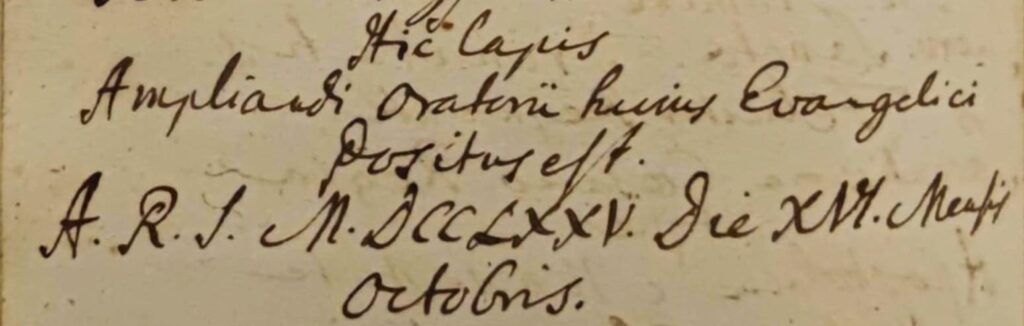 Hic Lapis
Ampliandi Oratorii huius Evangelici
Positus est.
A. R. S. M. DCCLXXV. Die XVI. Mensis
Octobris.